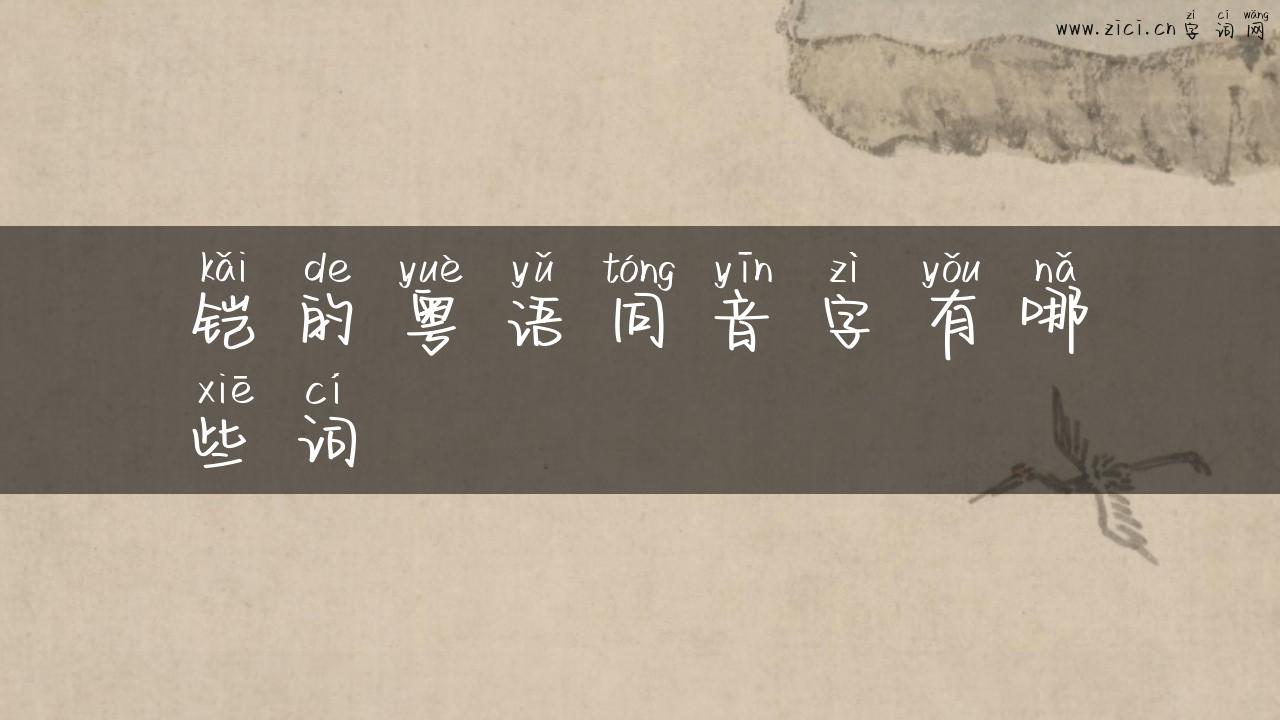 zì cí wǎng
www.zici.cn 字 词 网
kǎi de yuè yǔ tóng yīn zì yǒu nǎ
铠 的 粤 语 同 音 字 有 哪
xiē cí
些 词